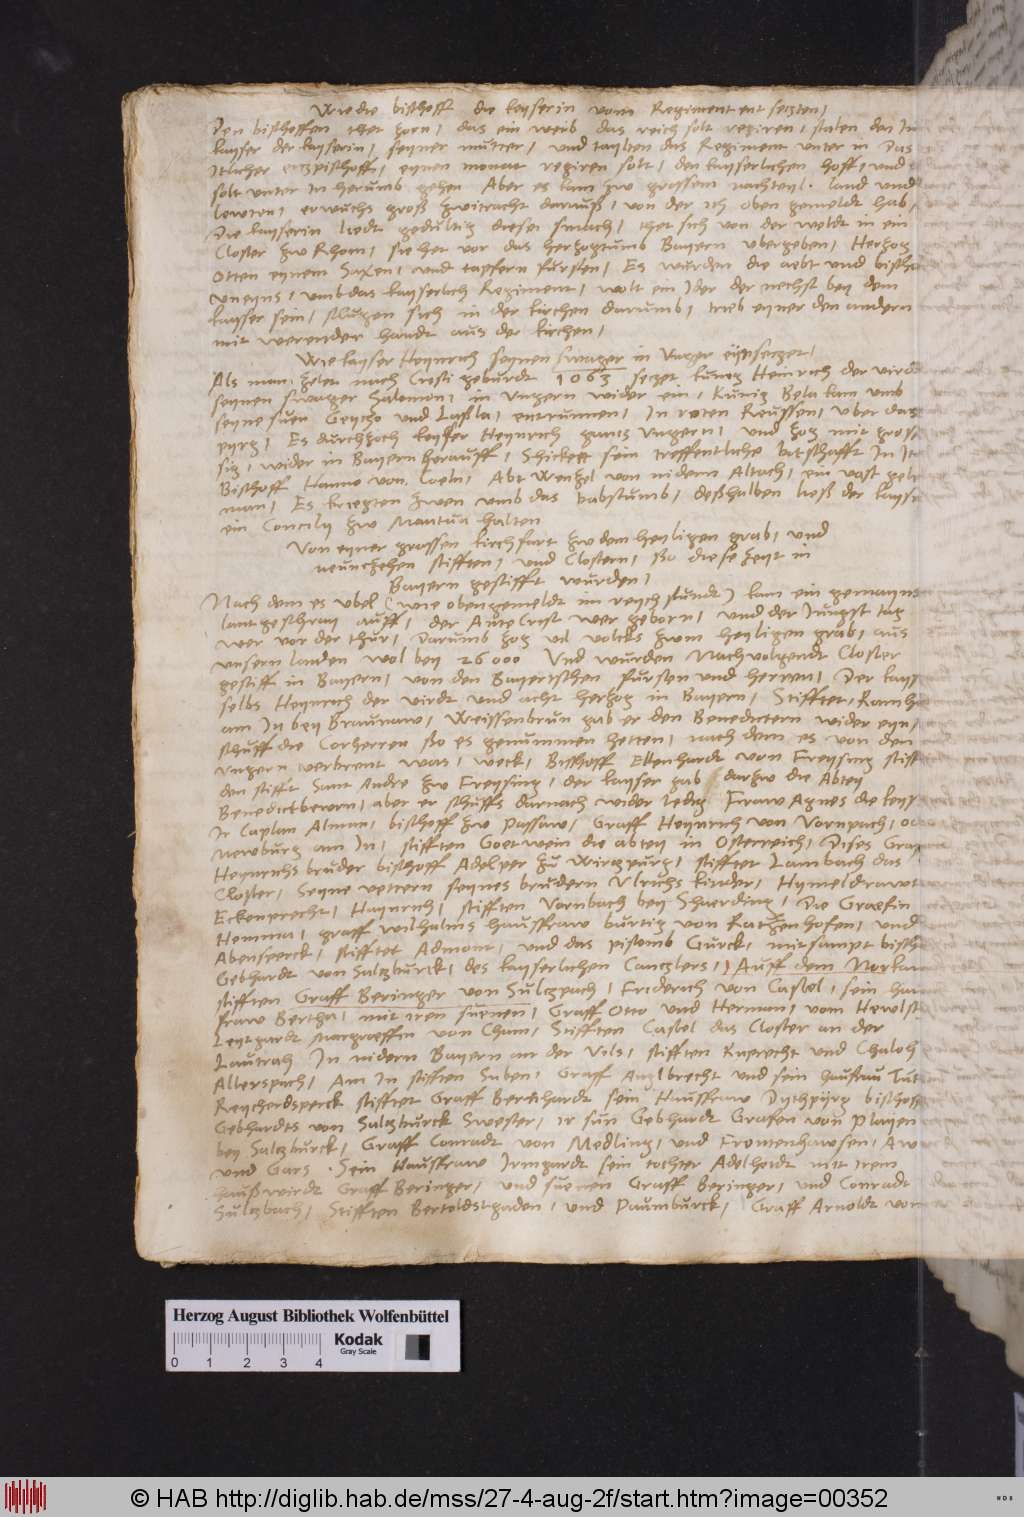 Wie die bischoff die keyserin vom Regiment ent setzten/
Den bischoffen thet zorn/ das ein weib das reich solt regiren/ stalen den Iu
kayser der kayserin/ seyner mutter/ und taylten das Regiment unter in Das
Itlicher ertzpischoff/ eynen monat regiren solt/ den kayserlichen hoff/ und
solt unter in herumb gehen Aber es kam zw grossem nachteyl. land und
lewten/ erwuchs groß zwitracht darauß/ von der ich oben gemeldt hab/
Die kayserin liedt gedultig diese smach/ thet sich von der weldt in ein
Closter zw Rhom/ sie het vor das herzogtumb Bayern ubergeben/ Herzog
Otten eynem Saxen/ und tapfern fursten/ Es wurden die aebt und bischo
uneyns/ umb das kayserlich Regiment/ wolt ein Ider der nechst bey dem
kayser sein/ slugen sich in der kirchen darumb/ trieb eyner den andern
mit werender handt aus der kirchen/
Wie kayser Heynrich seynen swager in Unger einsetzet/
Als man zelet nach Cristi geburdt 1063 setzet kunig Heinrich der vird
seynen swager Salomon/ in Ungern wider ein/ Kunig Bela kam umb
seyne suen Geytzo und Laßla/ entrunnen/ In roten Reussen/ uber das
pyrg/ Es durchzoch keyser Heynrich gants Ungern/ und zog mit gross
sig/ wider in Bayern herauff/ Shickett sein treffentliche botschafft In It
Bischoff Hanno von Coeln/ Abt Wenzel von nidern Altach/ ein vast gele
man/ Es kriegten zwen umb das babstumb/ deßhalben ließ der kayse
ein Concily zw Mantua halten
Von eyner grossen kirchfart zw dem heyligen grab/ und
neunzehen stifften/ und Clostern/ so diese zeyt in
Bayern gestifft wurden/
Nach dem es ubel (wie oben gemeldt im reych stundt) kam ein gemayns
lant geschray auff/ der Ante Crist wer geborn/ und der Jungst tag
wer vor der thur/ Darumb zog vil volcks zwm heyligen grab/ aus
unsern landen wol bey 26000 Und wurden Nachvolgendt Closter
gestiff in Bayern/ von den Bayerischen fursten und herren/ Der kays
selbs Heynrich der virdt und acht herzog in Bayern/ Stifftet/ Ramsh
am In bey Braunaw/ Weissenbrun gab er den Benedictern wider eyn/
schuff die Corherren so es genummen hetten/ nach dem es von den
Ungern verbrent was/ weck/ Bisshoff Ellenhardt von Freysing stift
den stifft Sant Andre zw Freysing/ der kayser gab darzw die Abtey
Benedictbewrn/ aber er schuffs darnach wider ledig Fraw Agnes die keys
Ir Caplan Alman/ bischoff zw Passaw/ Graff Heynrich von Vornpach/ od
Newburg am In/ stifften Goetwein die abtey in Osterreich/ Dises Gra
Heynrichs bruder bischoff Adelper zu Wirtzpurg/ stifftet Lambach das
Closter/ Seyne vettern seynes brudern Ulrichs kinder/ Hymeldrawt
Eckenprecht/ Haynrich/ stifften Vornbach bey Shaerding/ Die Graefin
Hemma/ graff Wilhalms hausfraw burtig von Ratzenhofen/ und
Abensperck/ stifftet Admont/ und das pistomb Gurck/ mit sampt bisch
Gebhardt von Saltzburck/ des kayserlichen Cantzlers/) Auff dem Norkaw
stifften Graff Beringer von Sultzpach/ Friderich von Castel/ sein hau
fraw Bertha/ mit iren suenen/ Graff Otto und Herman/ vom Hewlst
Leytgardt margraeffin von Cham/ Stifften Castel das Closter an der
Lautrah In nidern Bayern an der Vils/ stifften Ruprecht und Chaloh
Allerspach/ Am In stifften Suben/ Graff Anzlbrecht und sein hausfrau Tut
Reycherdsperck stifftet Graff Bernhardt sein Hausfraw Dythpurg bischoff
Gebhardts von Saltzburck Swester/ ir sun Gebhardt Grafen von Playen
bey Saltzburck/ Graff Conradt von Medling/ und Frontenhawsen/ Aw
und Gars. Sein Hausfraw Irmgardt sein tochter Adelheidt mit irem
haußwirdt Graff Beringer/ und suenen Graff Beringer/ und Conradt
Sultzbach/ Stifften Bertoldstgaden/ und Paumburck/ Graff Arnoldt von
Herzog August Bibliothek Wolfenbüttel
Kodak
Gray Scale
0 1 2 3 4
© HAB http://diglib.hab.de/mss/27-4-aug-2f/start.htm?image=00352